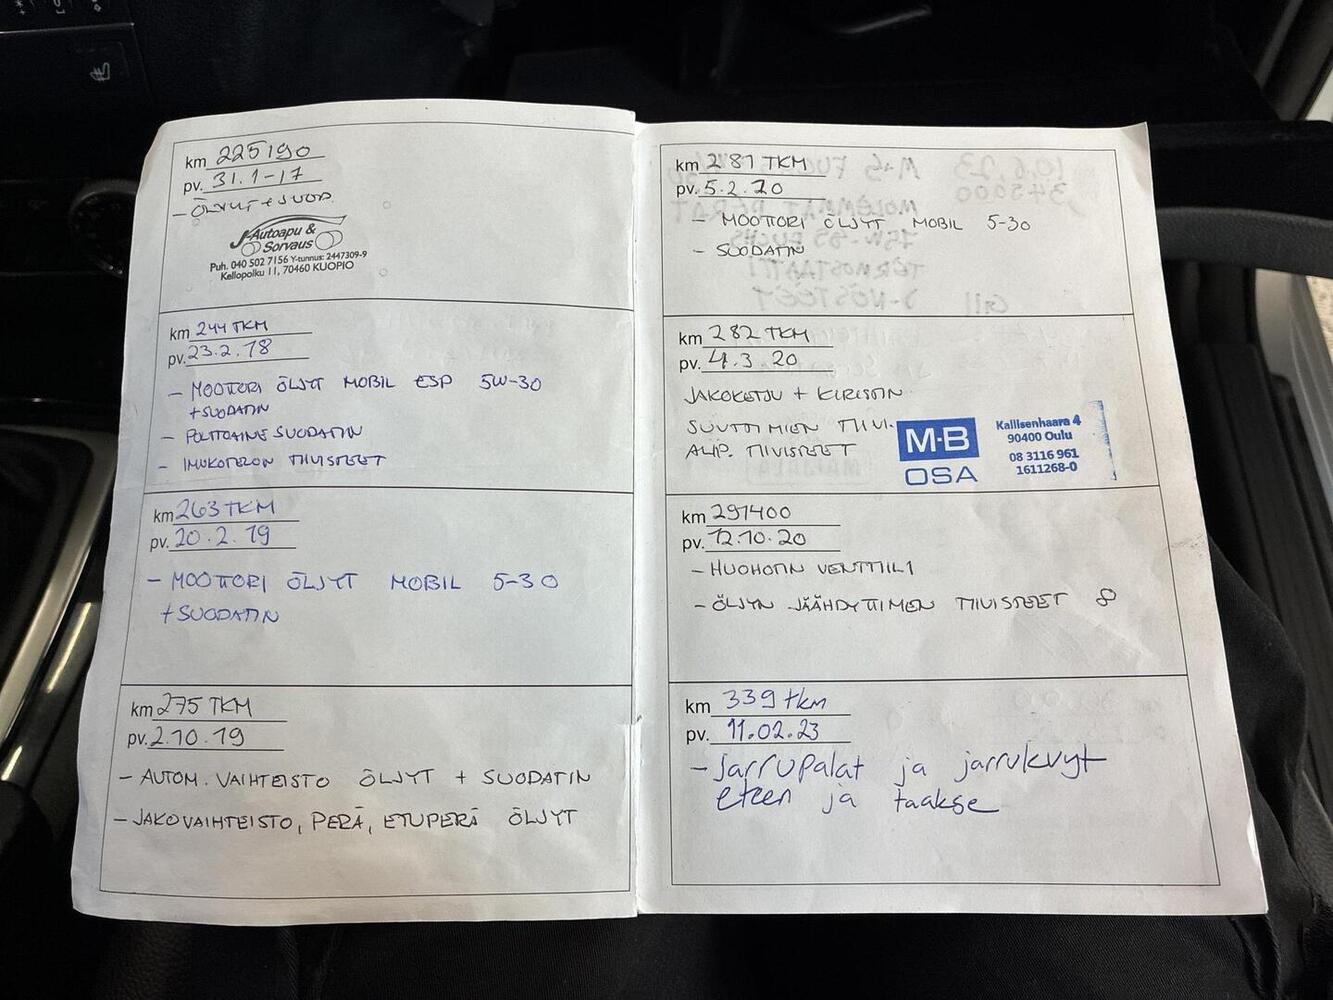 km 225190
pv. 31.1-17
- ÖLJYT + SUOD.
Autoapu &
Sorvaus
Puh. 040 502 7156 Y-tunnus: 2447309-9
Kellopolku 11, 70460 KUOPIO
km 244 TKM
pv. 23.2.18
- MOOTTORI ÖLJYT MOBIL ESP 5W-30
+ SUODATIN
- POLTTOAINE SUODATIN
- IMUKOTELON TIIVISTEET
km 263 TKM
pv. 20.2.19
- MOOTTORI ÖLJYT MOBIL 5-30
+ SUODATIN
km 275 TKM
pv. 2.10.19
- AUTOM. VAIHTEISTO ÖLJYT + SUODATIN
- JAKOVAIHTEISTO, PERÄ, ETUPERÄ ÖLJYT
km 281 TKM
pv. 5.2.20
- MOOTTORI ÖLJYT MOBIL 5-30
- SUODATIN
km 282 TKM
pv. 4.3.20
JAKOKETJU + KIRISTIN
SUUTTIMIEN TIIVI.
ALIP. TIIVISTEET
M-B
OSA
Kallisenhaara 4
90400 Oulu
08 3116 961
1611268-0
km 291400
pv. 12.10.20
- HUOHOTIN VENTTIILI
- ÖLJYN JÄÄHDYTTIMEN TIIVISTEET
km 339 tkm
pv. 11.02.23
- Jarrupalat ja jarrukvyt
eteen ja taakse